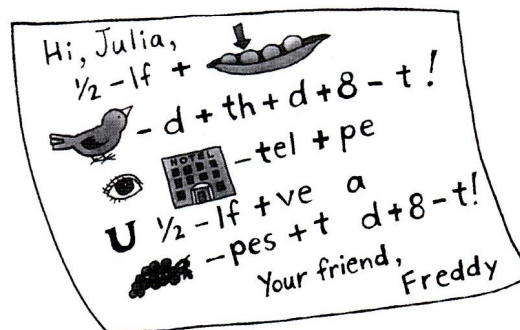 Hi, Julia,
½-lf +
- d + th + d + 8 - t !
HOTEL - tel + pe
U ½-lf + ve a
- pes + t d + 8 - t!
Your friend,
Freddy